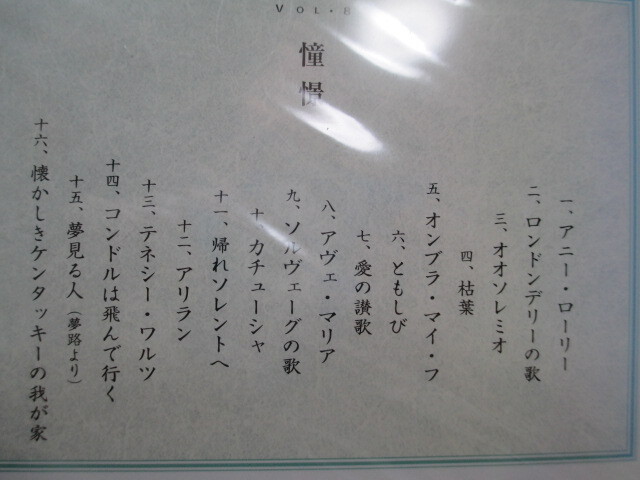 VOL・8
憧憬
一、アニー・ローリー
二、ロンドンデリーの歌
三、オオソレミオ
四、枯葉
五、オンブラ・マイ・フ
六、ともしび
七、愛の讃歌
八、アヴェ・マリア
九、ソルヴェーグの歌
十、カチューシャ
十一、帰れソレントへ
十二、アリラン
十三、テネシー・ワルツ
十四、コンドルは飛んで行く
十五、夢見る人（夢路より）
十六、懐かしきケンタッキーの我が家